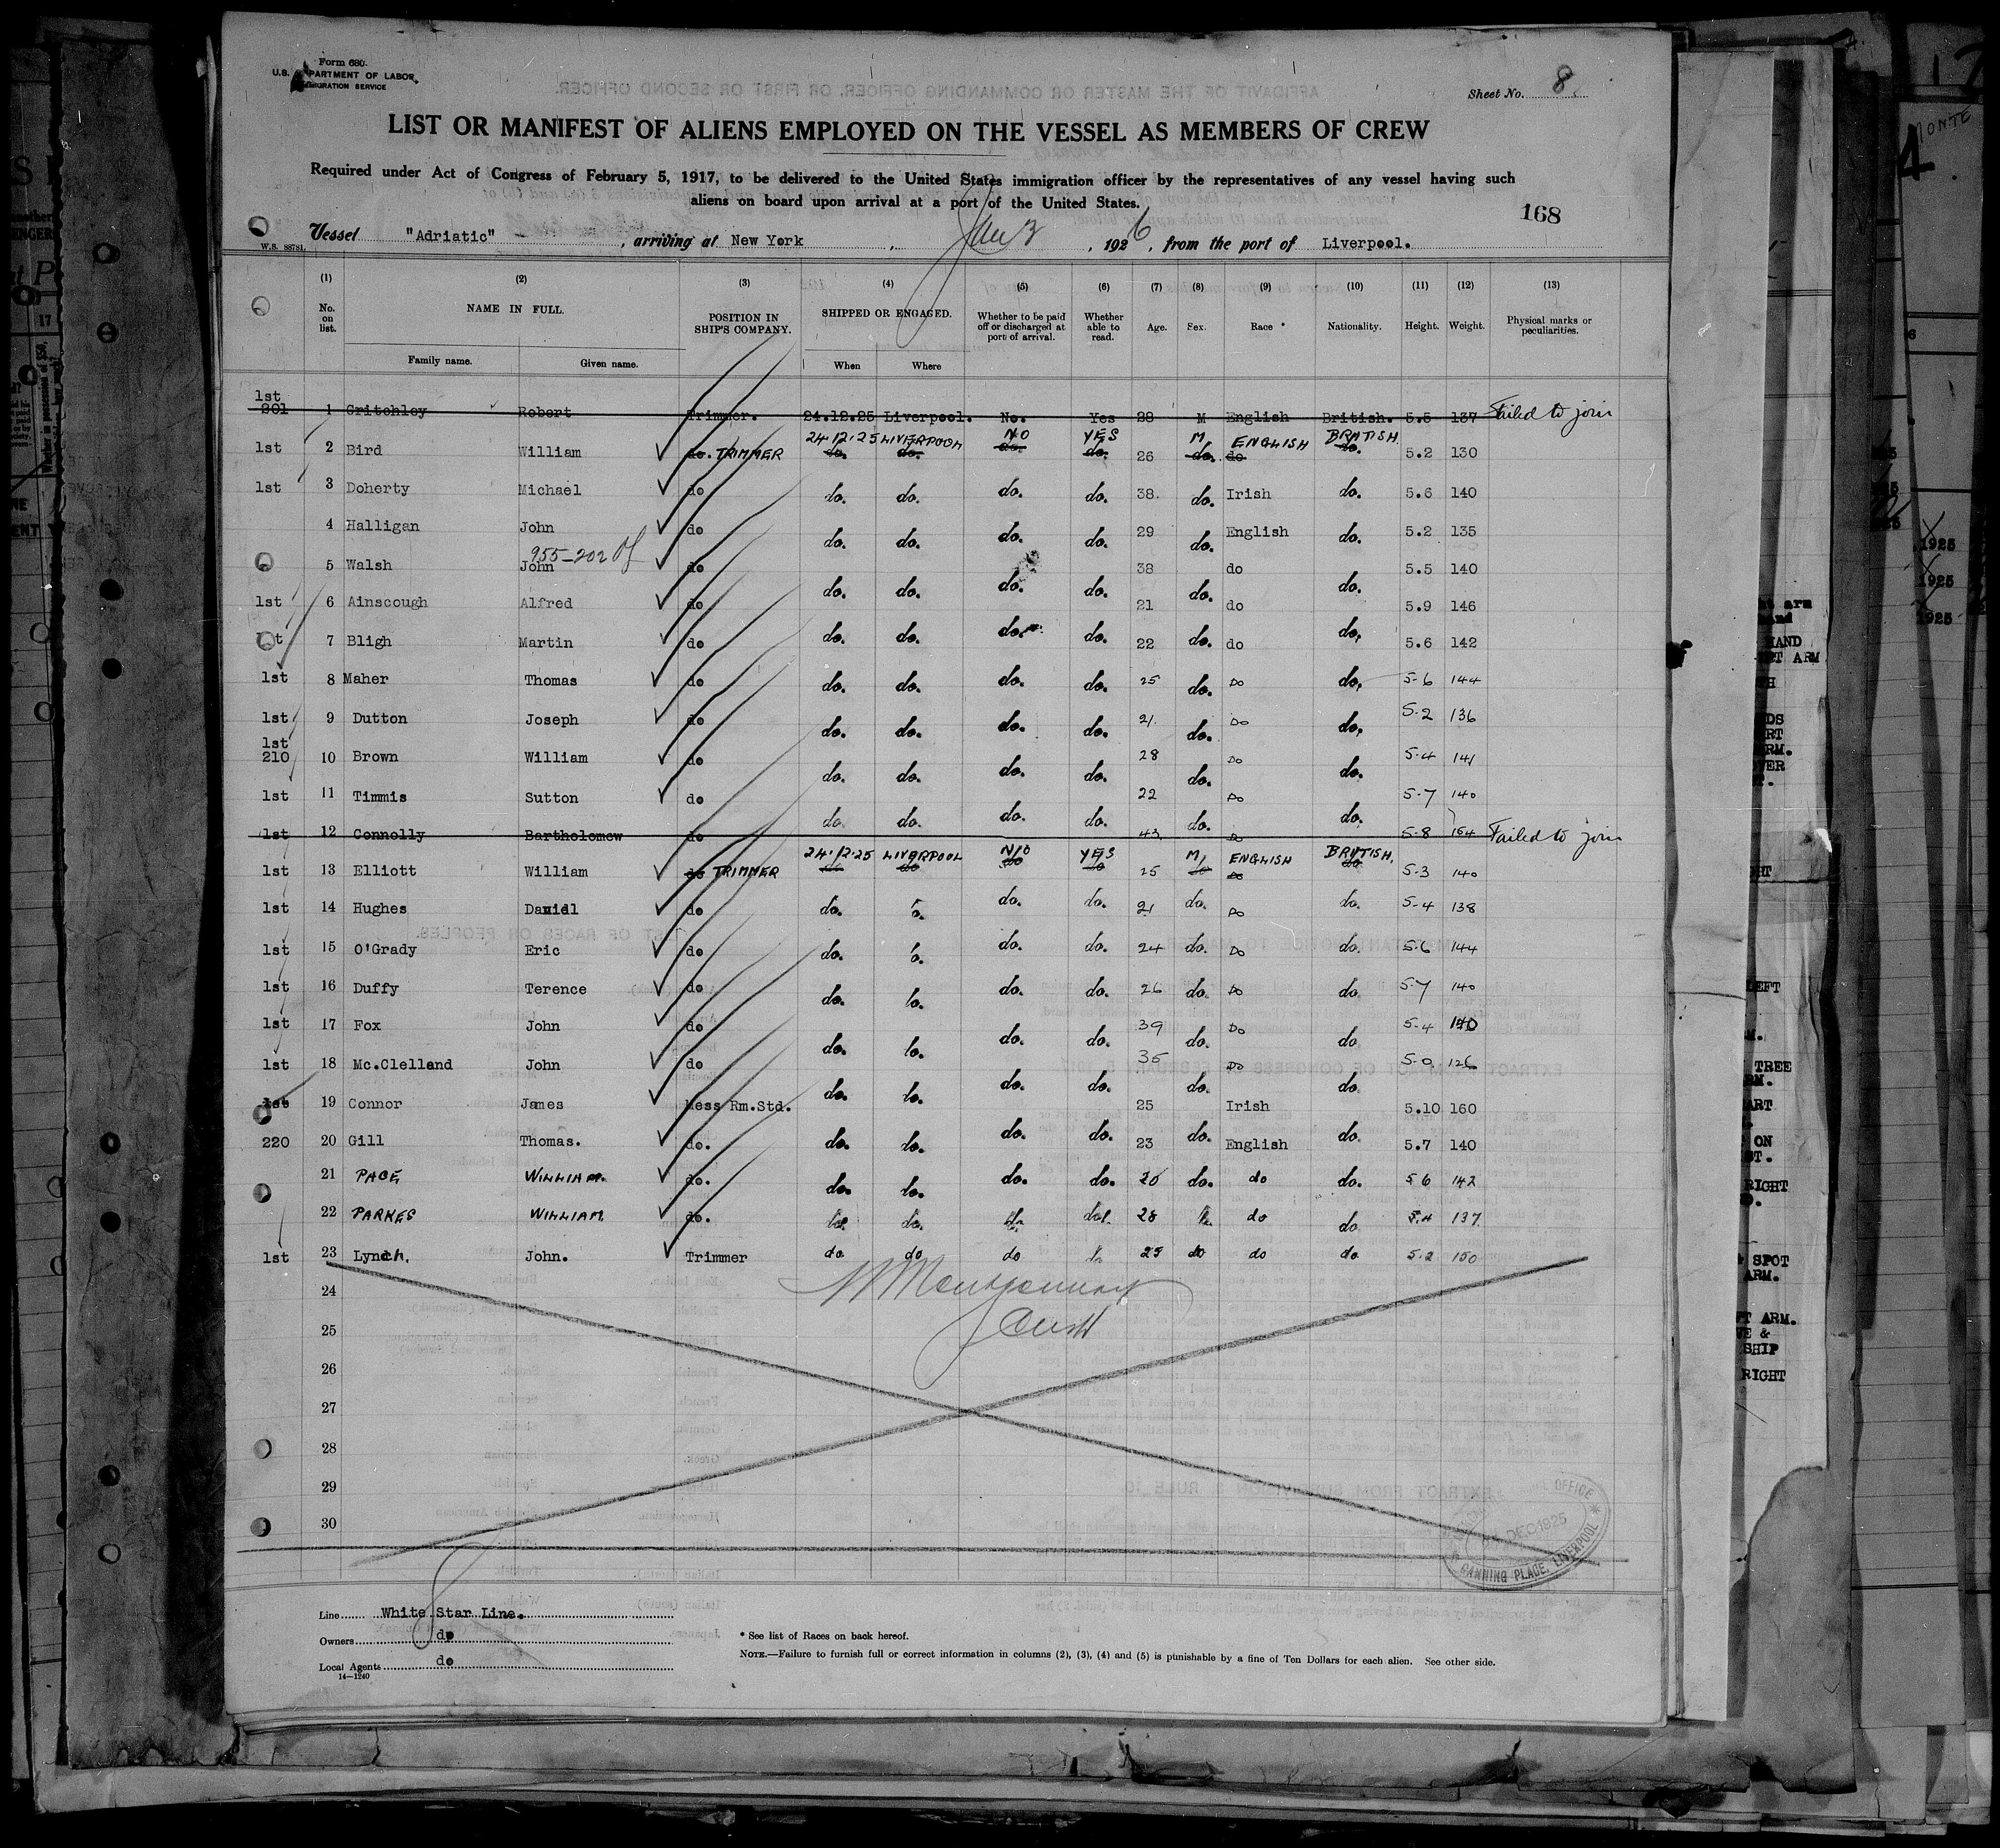 Form 680.
U.S. DEPARTMENT OF LABOR
IMMIGRATION SERVICE
Sheet No. 8
LIST OR MANIFEST OF ALIENS EMPLOYED ON THE VESSEL AS MEMBERS OF CREW
Required under Act of Congress of February 5, 1917, to be delivered to the United States immigration officer by the representatives of any vessel having such
aliens on board upon arrival at a port of the United States.
168
W.S. 88781
Vessel "Adriatic", arriving at New York, Jan 3, 1926, from the port of Liverpool.
(1) (2) (3) (4) (5) (6) (7) (8) (9) (10) (11) (12) (13)
No. on list. NAME IN FULL. POSITION IN SHIP'S COMPANY. SHIPPED OR ENGAGED. Whether to be paid off or discharged at port of arrival. Whether able to read. Age. Sex. Race * Nationality. Height. Weight. Physical marks or peculiarities.
Family name. Given name. When Where
1st 201 1 Critchley Robert Trimmer. 24.12.25 Liverpool. No. Yes 28 M English British. 5.5 137 Failed to join
1st 2 Bird William do. TRIMMER 24.12.25 LIVERPOOL NO YES 26 M ENGLISH BRITISH. 5.2 130
1st 3 Doherty Michael do do. do. do. do. 38. do. Irish do. 5.6 140
4 Halligan John do do. do. do. do. 29 do. English do. 5.2 135
955-202
5 Walsh John do do. do. do. do. 38 do. do do. 5.5 140
1st 6 Ainscough Alfred do do. do. do. do. 21 do. do do. 5.9 146
1st 7 Bligh Martin do do. do. do. do. 22 do. do do. 5.6 142
1st 8 Maher Thomas do do. do. do. do. 25 do. Do do. 5-6 144
1st 9 Dutton Joseph do do. do. do. do. 21. do. Do do. 5.2 136
1st 210 10 Brown William do do. do. do. do. 28 do. Do do. 5-4 141
1st 11 Timmis Sutton do do. do. do. do. 22 do. Do do. 5-7 140
1st 12 Connolly Bartholomew do 43 Do 5-8 164 Failed to join
1st 13 Elliott William do TRIMMER 24.12.25 LIVERPOOL NO YES 25 M ENGLISH BRITISH. 5-3 140
1st 14 Hughes Daniel do do. do. do. do. 21 do. Do do. 5-4 138
1st 15 O'Grady Eric do do. do. do. do. 24 do. Do do. 5-6 144
1st 16 Duffy Terence do do. do. do. do. 26 do. Do do 5-7 140
1st 17 Fox John do do. do. do. do. 39 do. Do do 5-4 140
1st 18 Mc.Clelland John do do. do. do. do. 35 do. Do do 5-0 126
1st 19 Connor James Mess Rm.Std. 25 Irish 5.10 160
220 20 Gill Thomas. do. do. do. do. do. 23 do. English do. 5.7 140
21 PAGE WILLIAM. do. do. do. do. do. 20 do. do do. 5 6 142
22 PARKES WILLIAM do. do. do. 28 do do 5.4 137
1st 23 Lynch. John. Trimmer do do do 25 do do do 5.2 150
24
25
26
27
28
29
30
DEC 1925
CANNING PLACE, LIVERPOOL
Line White Star Line.
Owners do
Local Agents do
14-1240
* See list of Races on back hereof.
NOTE.—Failure to furnish full or correct information in columns (2), (3), (4) and (5) is punishable by a fine of Ten Dollars for each alien. See other side.